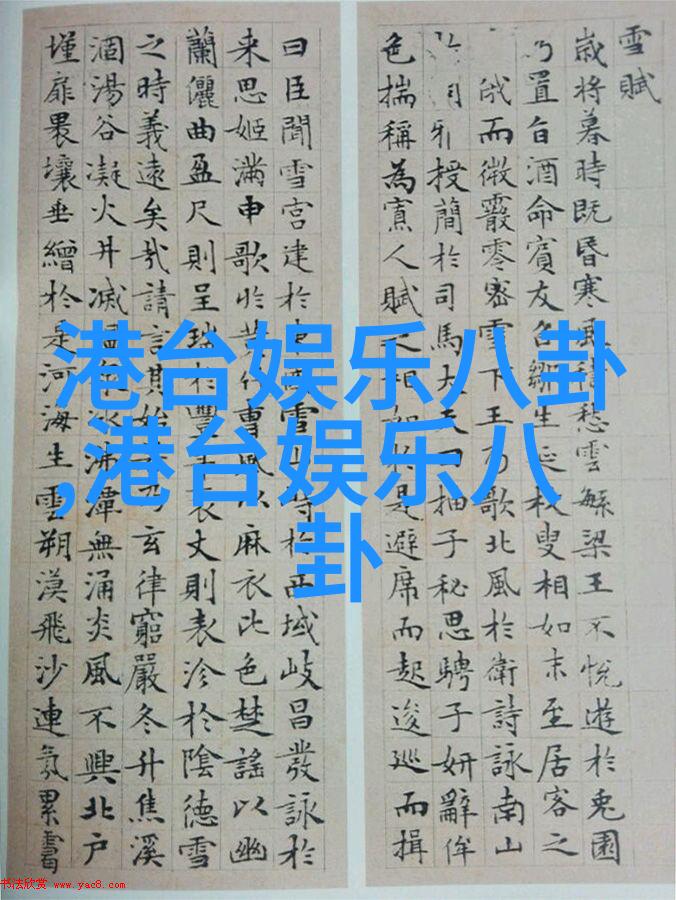 雪賦
歲將暮時既昏寒風積愁雲繁梁王不悅遊於兔園
乃置旨酒命賓友召鄒生延枚叟相如末至居客之
俄而微霰零密雪下王乃歌北風於衛詩詠南山
雅授簡於司馬大夫曰抽子秘思騁子妍辭侔
色揣稱為寡人賦之相如於是避席而起逡巡而揖
曰臣聞雪宮建於東雪山峙於西域岐昌發詠於
来思姬滿申歌於黃竹曹風以麻衣比色楚謠以幽
蘭儷曲盈尺則呈瑞於豐年袤丈則表沴於陰德雪
之時義遠矣哉請言其始若乃玄律窮嚴冬升焦溪
涸湯谷凝火井滅溫泉冰沸潭無涌炎風不興北户
墐扉裸壤垂繒於是河海生雲朔漠飛沙連氛累靄
港台娱乐八卦
,港台娱乐八
卦
书法欣赏 www.yac8.com